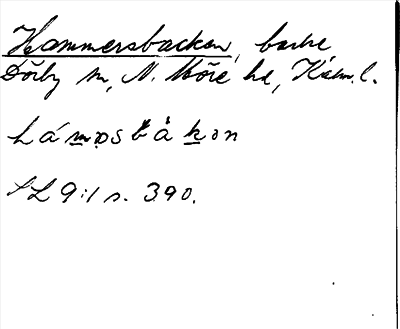 Hammersbacken, backe
Dörby sn, N. Möre hd, Kalm. l.
hámǝsbàkǝn
SL 9:1 s. 390.